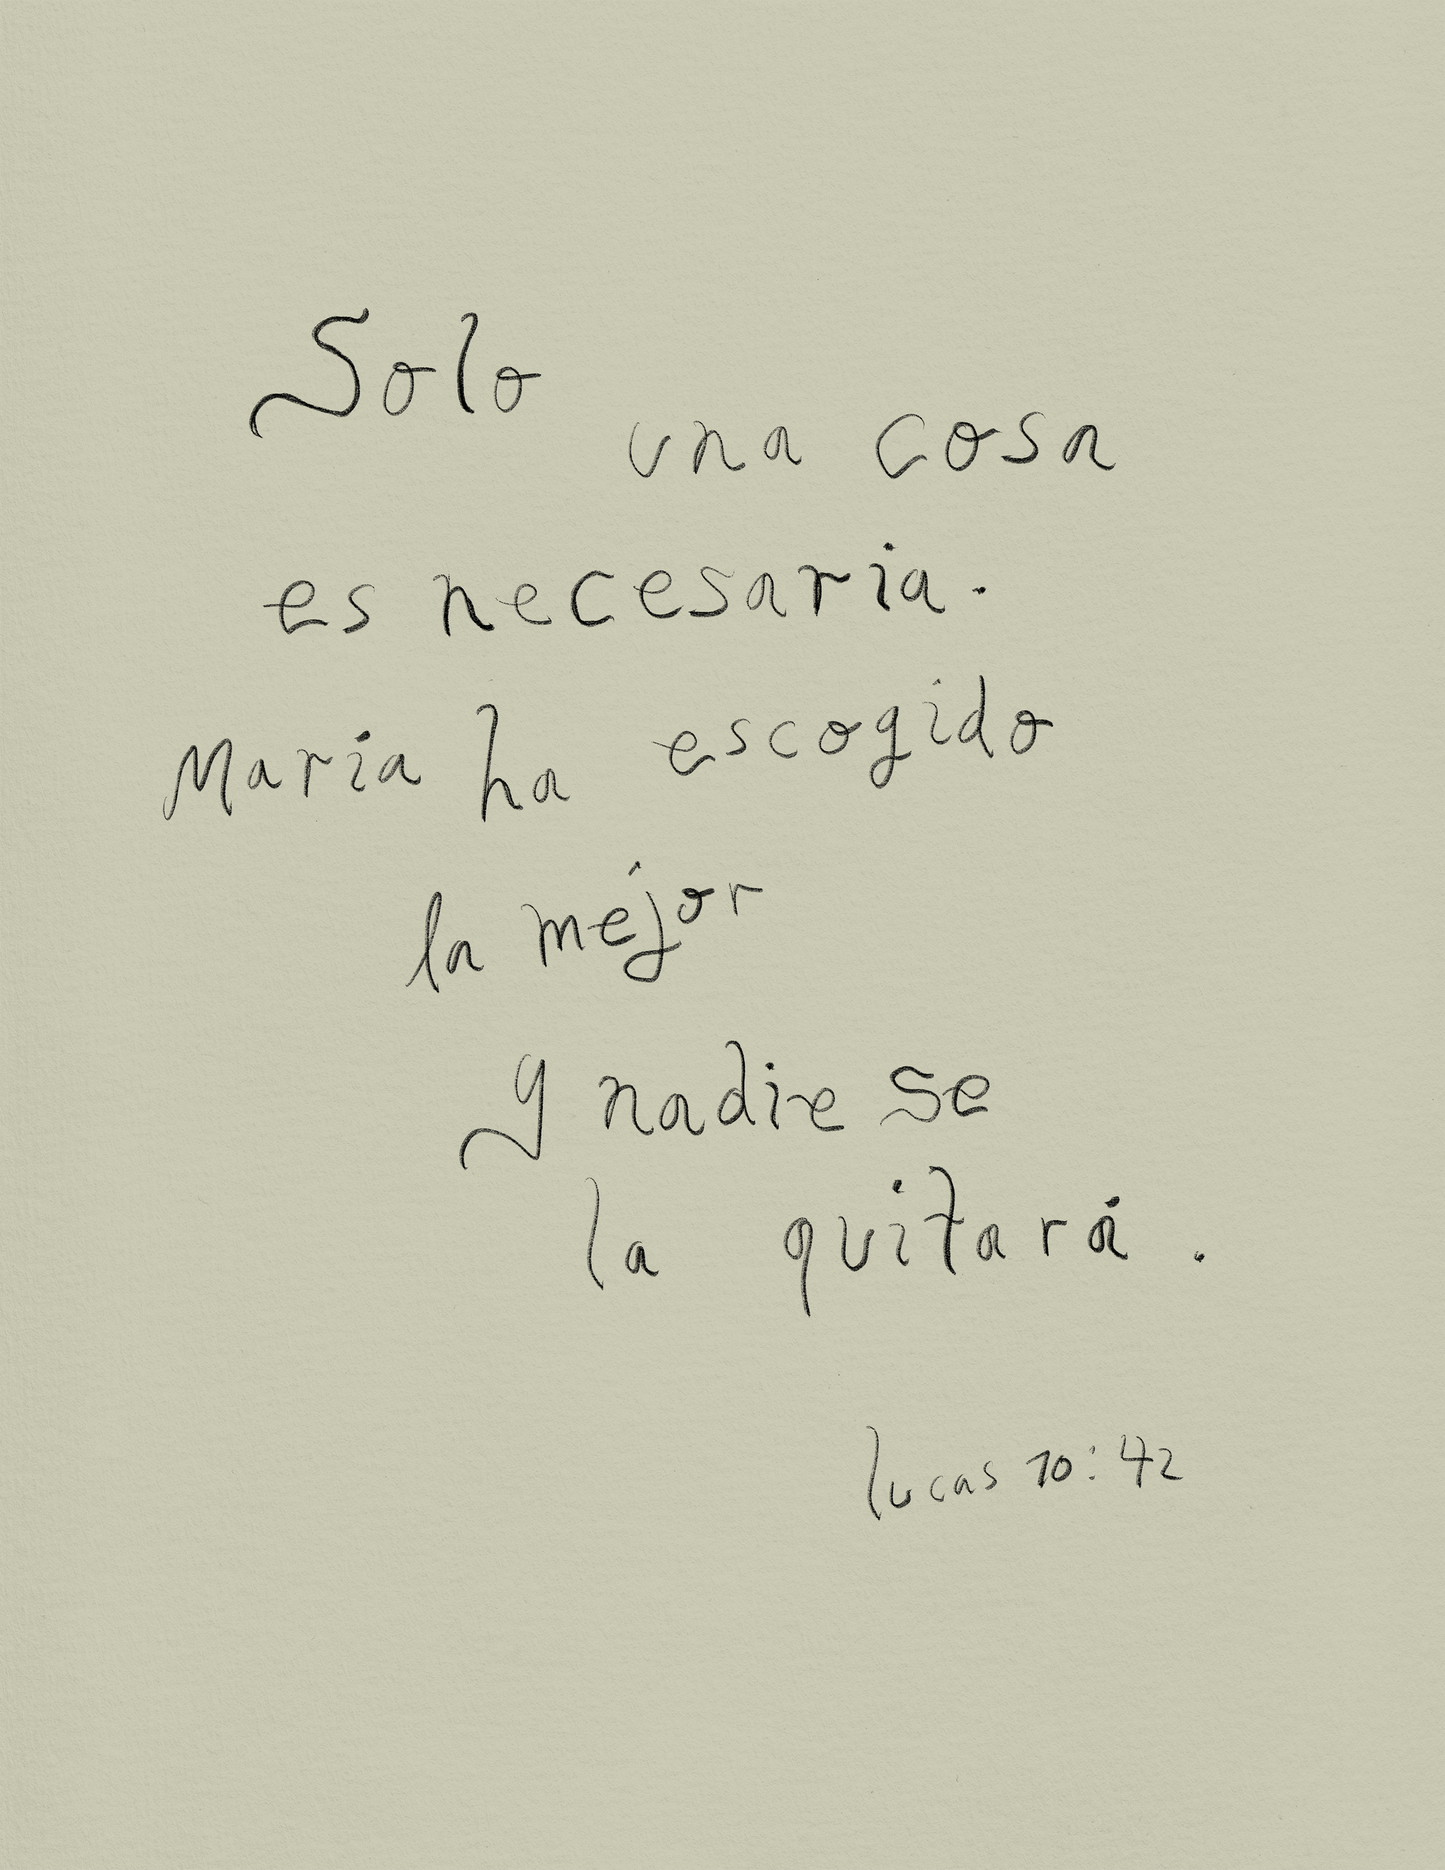 Solo una cosa
es necesaria.
María ha escogido
la mejor
y nadie se
la quitará.
lucas 10:42